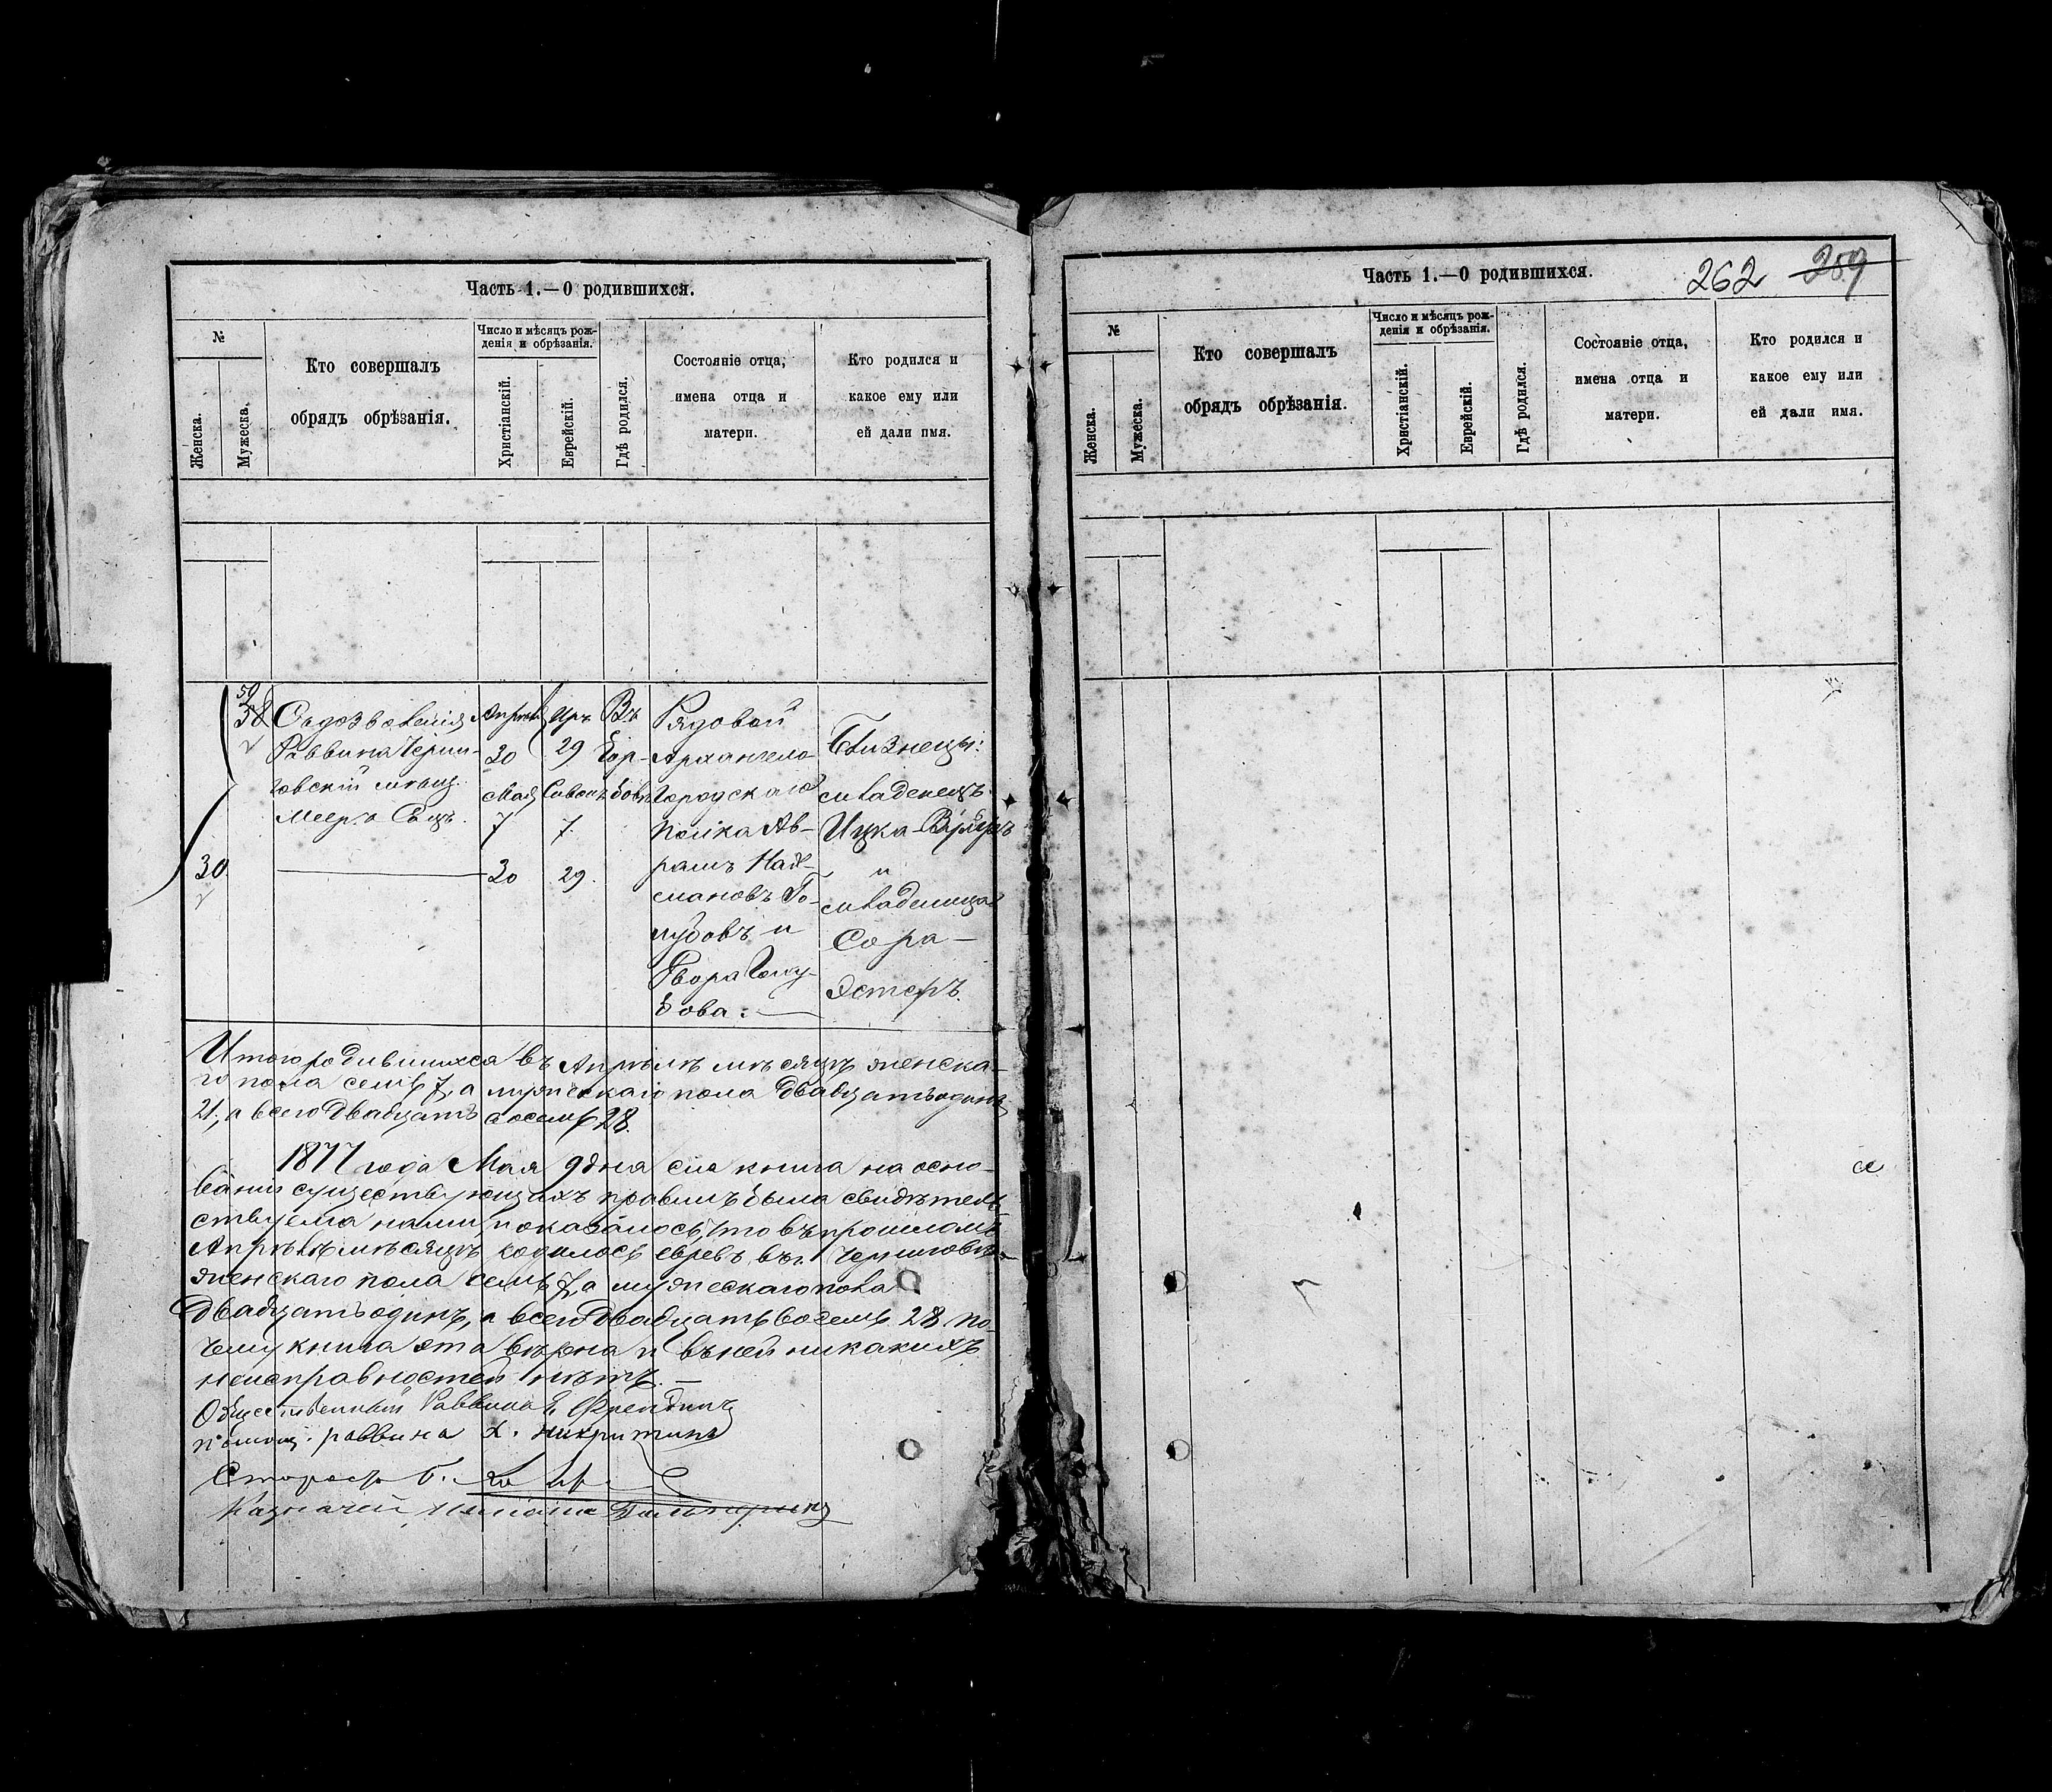 Часть 1.—О родившихся.
№
Женска.
Мужеска.
Кто совершалъ
обрядъ обрѣзанія.
Число и мѣсяцъ рож-
денія и обрѣзанія.
Христіанскій.
Еврейскій.
Гдѣ родился.
Состояніе отца,
имена отца и
матери.
Кто родился и
какое ему или
ей дали имя.
58
Раввина Черни-
говскій мѣщ.
Мееръ
30
Мая
7
29
Сивонъ
7
Въ
Рядовой
Архангело
городскаго
полка Ав-
рамъ Нах-
мановъ Го-
лубовъ и
Двора Голу-
бова.
Близнецы:
младенецъ
Ицка-
и
младеница
Сора-
Эстеръ.
30
30
29
Итого родившихся въ Апрѣлѣ мѣсяцѣ женска-
го пола семь 7, а мужескаго пола двадцать одинъ
21, а всего двадцать восемь 28.
1877 года Мая 9 дня сія книга на осно-
ваніи существующихъ правилъ была свидѣтель-
ствуема нами, и оказалось, что въ прошломъ
Апрѣлѣ мѣсяцѣ родилось евреевъ въ г. Черниговѣ
женскаго пола семь 7, а мужескаго пола
двадцать одинъ, а всего двадцать восемь 28. По-
чему книга эта вѣрна и въ ней никакихъ
неисправностей нѣтъ. —
Общественный Раввинъ
помощ. раввина
Староста Б.
Казначей
Часть 1.—О родившихся.
262 259
№
Женска.
Мужеска.
Кто совершалъ
обрядъ обрѣзанія.
Число и мѣсяцъ рож-
денія и обрѣзанія.
Христіанскій.
Еврейскій.
Гдѣ родился.
Состояніе отца,
имена отца и
матери.
Кто родился и
какое ему или
ей дали имя.